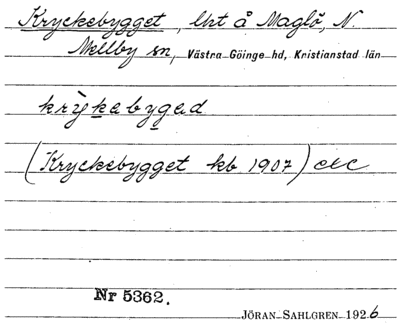 Kryckebygget, lht å Maglö, N.
Mellby sn, Västra Göinge hd, Kristianstad län
krỳkabygad
(Kryckebygget kb 1907) etc
Nr 5362.
JÖRAN SAHLGREN 1926